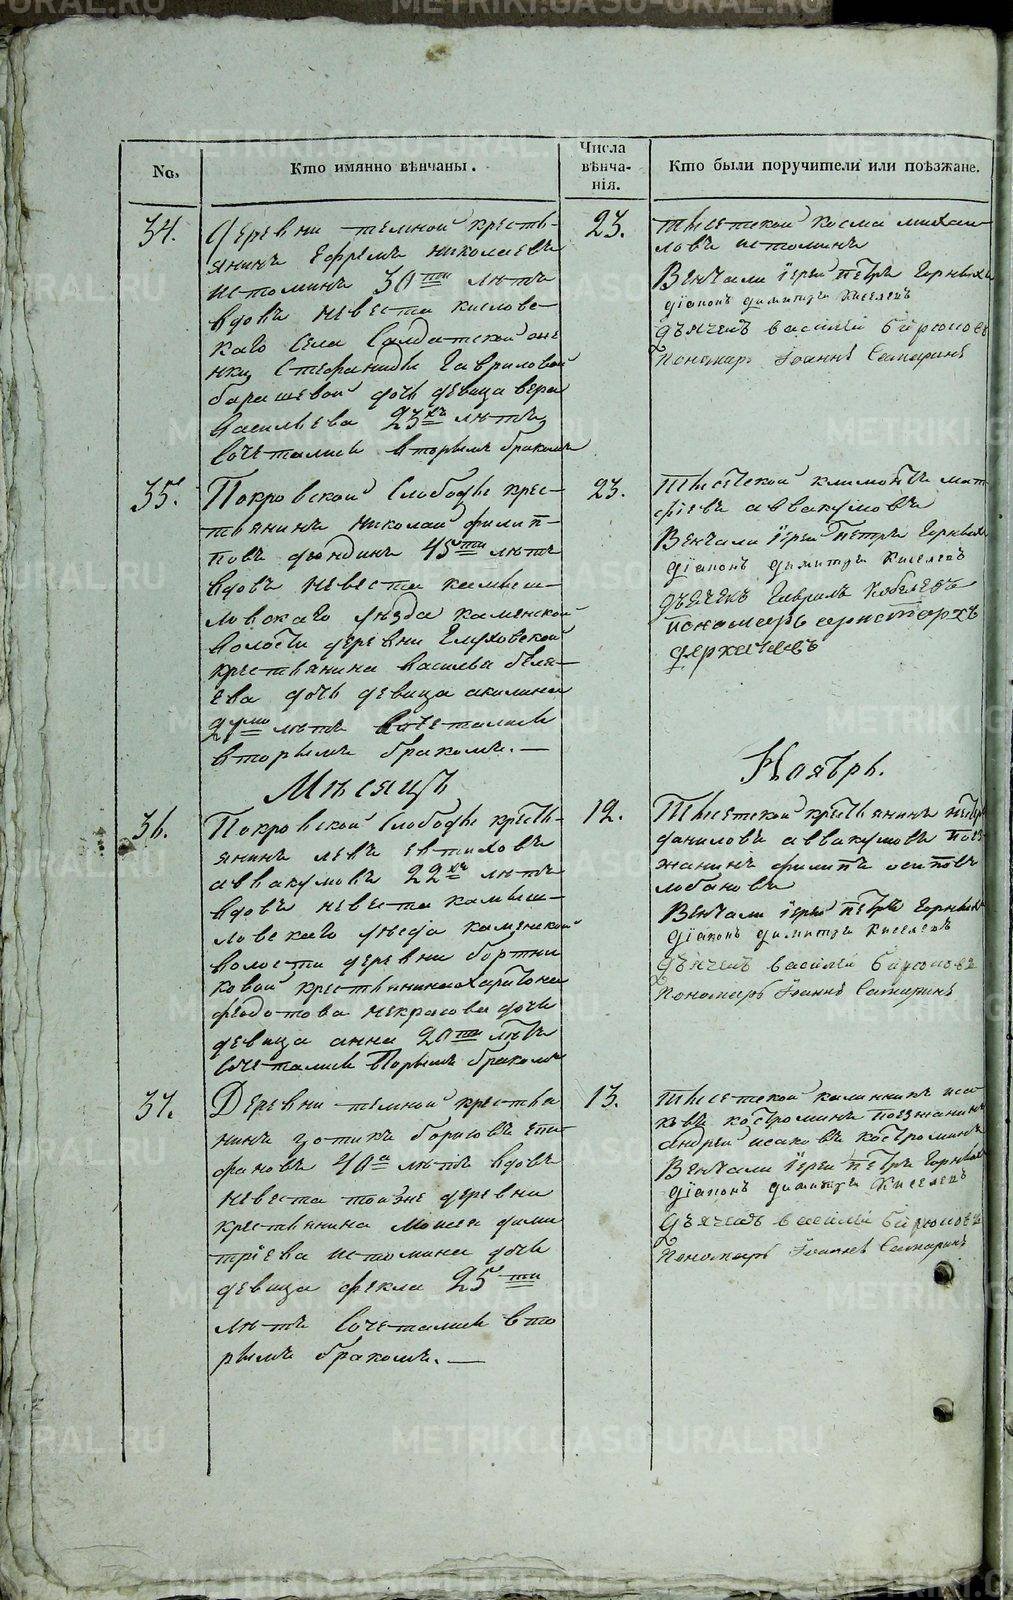 No.
Кто имянно вѣнчаны.
Числа
вѣнча-
нія.
Кто были поручители или поѣзжане.
34.
Деревни темной кресть-
янинъ Ефремъ николаевъ
истоминъ 30ти лѣтъ
вдовъ невеста кислов-
каго села Салдатской
Стефаниды Гавриловой
барашевой дочь девица вера
васильева 23хъ лѣтъ
Сочетались вторымъ бракомъ
23.
косма михаи-
ловъ истоминъ
Венчали іерей петръ Горныхъ
діаконъ димитри Киселевъ
дъячекъ василій бирюковъ
Пономарь Іоаннъ Сатаринъ
35.
Покровской Слободы крес-
тьянинъ николай филип-
повъ дюндинъ 45ти лѣтъ
вдовъ невеста камыш-
ловскаго уѣзда каменской
волости деревни Глуховской
крестьянина василья беля-
ева дочь девица акилина
27ми лѣтъ Сочетались
вторымъ бракомъ.—
23.
климонтъ мат
фіевъ аввакумовъ
Венчали іерей Петръ Горныхъ
діаконъ димитри Киселевъ
дъячекъ Гаврилъ Кобелевъ
пономарь аристархъ
держачевъ
Мѣсяцъ
Ноябрь.
36.
Покровской Слободы кресть-
янинъ левъ евтиховъ
аввакумовъ 22хъ лѣтъ
вдовъ невеста камыш-
ловскаго уѣзда каменской
волости деревни бортни
ковой крестьянина харитона
федотова некрасова дочь
девица анна 20ти лѣтъ
Сочетались вторымъ бракомъ
12.
крестьянинъ петръ
даниловъ аввакумовъ поез
жанинъ филипъ осиповъ
лобановъ
Венчали іерей петръ Горныхъ
діаконъ димитри Киселевъ
дъячекъ василій бирюковъ
Пономарь Іоаннъ Сатаринъ
37.
Деревни темной крестья
нинъ зотикъ борисовъ епи
фановъ 40а лѣтъ вдовъ
невеста тоеже деревни
крестьянина Моисея дими
тріева истомина дочь
девица фекла 25ти
лѣтъ Сочетались вто
рымъ бракомъ.—
13.
калинникъ иса
ковъ костроминъ поезжанинъ
андрей исаковъ костроминъ
Венчали іерей петръ Горныхъ
діаконъ димитри Киселевъ
дъячекъ василій бирюковъ
Пономарь Іоаннъ Сатаринъ
METRIKI.GASO-URAL.RU